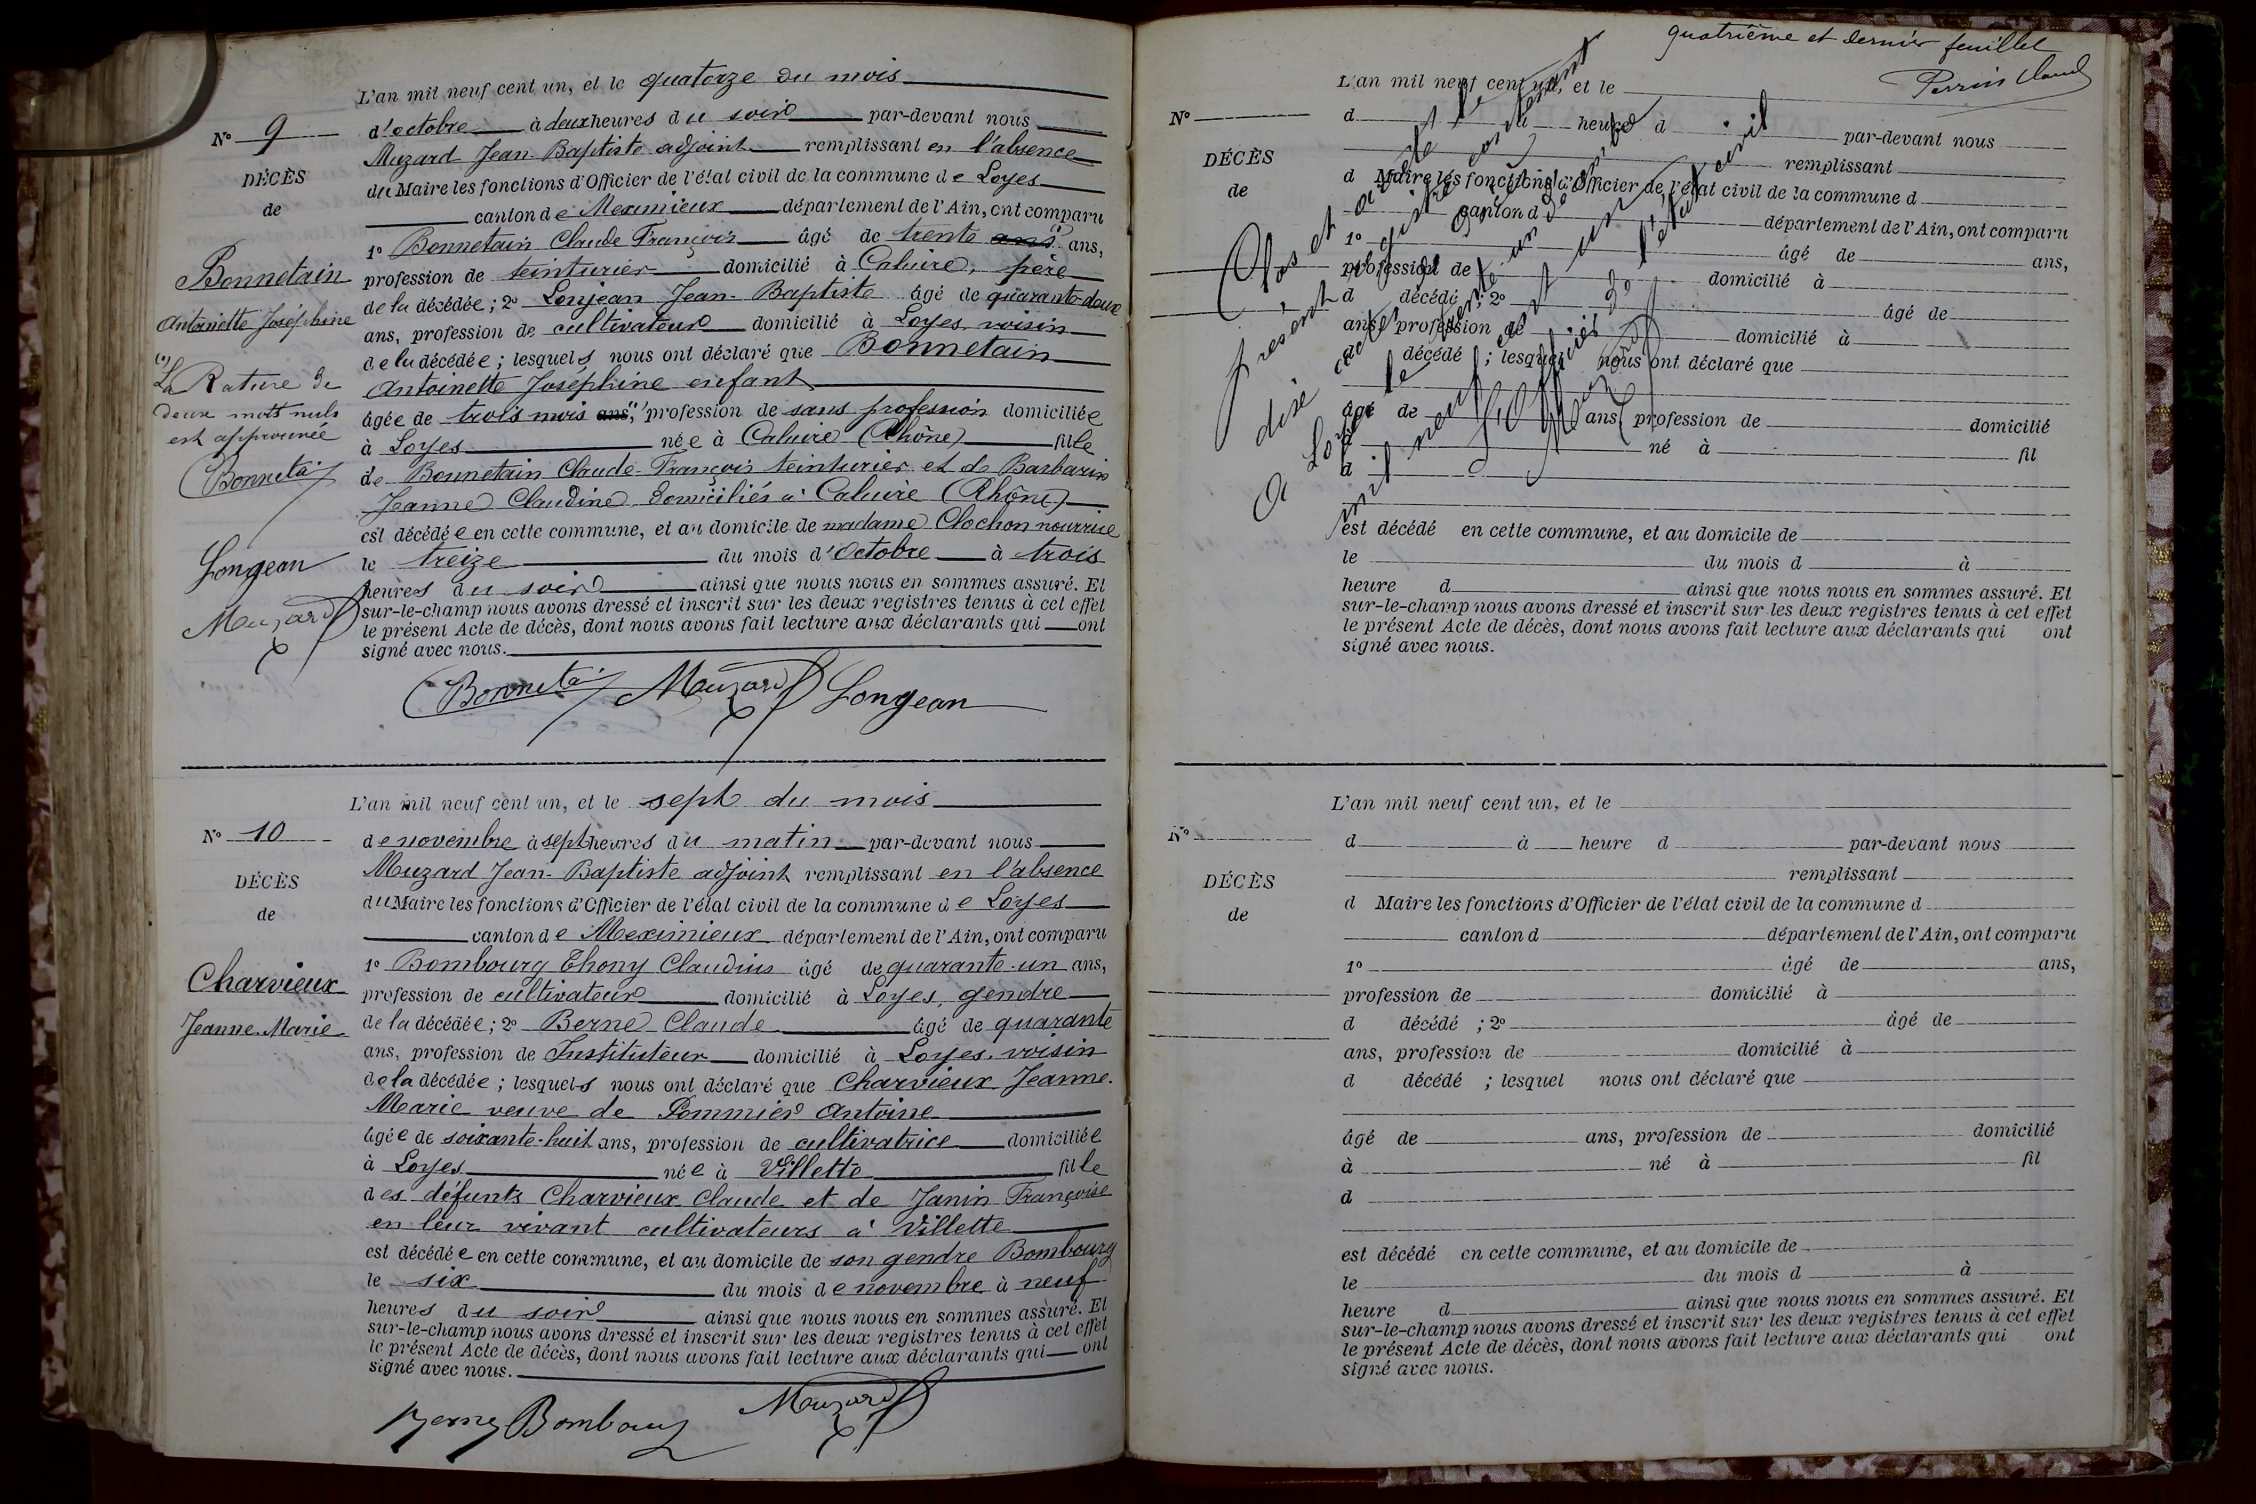 L'an mil neuf cent un, et le quatorze du mois
d'octobre à deux heures du soir par-devant nous
Muzard Jean-Baptiste adjoint remplissant en l'absence
du Maire les fonctions d'Officier de l'état civil de la commune de Loyes
canton de Meximieux département de l'Ain, ont comparu
1° Bonnetain Claude François âgé de trente ans ans,
profession de teinturier domicilié à Caluire, père
de la décédée ; 2° Lonjean Jean-Baptiste âgé de quarante-deux
ans, profession de cultivateur domicilié à Loyes voisin
de la décédée ; lesquels nous ont déclaré que Bonnetain
Antoinette Joséphine enfant
âgée de trois mois ans, profession de sans profession domiciliée
à Loyes née à Caluire (Rhône) fille
de Bonnetain Claude-François teinturier et de Barbarin
Jeanne Claudine domiciliés à Caluire (Rhône)
est décédée en cette commune, et au domicile de madame Clochon nourrice
le treize du mois d'Octobre à trois
heures du soir ainsi que nous nous en sommes assuré. Et
sur-le-champ nous avons dressé et inscrit sur les deux registres tenus à cet effet
le présent Acte de décès, dont nous avons fait lecture aux déclarants qui ont
signé avec nous.
Bonnetai Muzard Longean
N° 9
DÉCÈS
de
Bonnetain
Antoinette Joséphine
La Rature de
deux mots nuls
est approuvée
Bonnetai
Longean
Muzard
L'an mil neuf cent un, et le sept du mois
de novembre à sept heures du matin par-devant nous
Muzard Jean-Baptiste adjoint remplissant en l'absence
du Maire les fonctions d'Officier de l'état civil de la commune de Loyes
canton de Meximieux département de l'Ain, ont comparu
1° Bombourg Thony Claudius âgé de quarante-un ans,
profession de cultivateur domicilié à Loyes, gendre
de la décédée ; 2° Berne Claude âgé de quarante
ans, profession de Instituteur domicilié à Loyes, voisin
de la décédée ; lesquels nous ont déclaré que Charvieux Jeanne-
Marie veuve de Pommier Antoine
âgée de soixante-huit ans, profession de cultivatrice domiciliée
à Loyes née à Villette fille
des défunts Charvieux Claude et de Janin Françoise
en leur vivant cultivateurs à Villette
est décédée en cette commune, et au domicile de son gendre Bombourg
le six du mois de novembre à neuf
heures du soir ainsi que nous nous en sommes assuré. Et
sur-le-champ nous avons dressé et inscrit sur les deux registres tenus à cet effet
le présent Acte de décès, dont nous avons fait lecture aux déclarants qui ont
signé avec nous.
Berne Bombourg Muzard
N° 10
DÉCÈS
de
Charvieux
Jeanne-Marie
quatrième et dernier feuillet
Perrin Claude
L'an mil neuf cent un, et le
N°
d à heure d par-devant nous
remplissant
DÉCÈS
de
d Maire les fonctions d'Officier de l'état civil de la commune d
canton d département de l'Ain, ont comparu
1° âgé de ans,
profession de domicilié à
d décédé ; 2° âgé de
ans, profession de domicilié à
d décédé ; lesquel nous ont déclaré que
âgé de ans, profession de domicilié
à né à fil
d
est décédé en cette commune, et au domicile de
le du mois d à
heure d ainsi que nous nous en sommes assuré. Et
sur-le-champ nous avons dressé et inscrit sur les deux registres tenus à cet effet
le présent Acte de décès, dont nous avons fait lecture aux déclarants qui ont
signé avec nous.
Clos et arrêté le
présent registre contenant
dix actes de décès
à Loyes le trente-un décembre
mil neuf cent un
L'Officier de l'état civil
Muzard
L'an mil neuf cent un, et le
N°
d à heure d par-devant nous
remplissant
DÉCÈS
de
d Maire les fonctions d'Officier de l'état civil de la commune d
canton d département de l'Ain, ont comparu
1° âgé de ans,
profession de domicilié à
d décédé ; 2° âgé de
ans, profession de domicilié à
d décédé ; lesquel nous ont déclaré que
âgé de ans, profession de domicilié
à né à fil
d
est décédé en cette commune, et au domicile de
le du mois d à
heure d ainsi que nous nous en sommes assuré. Et
sur-le-champ nous avons dressé et inscrit sur les deux registres tenus à cet effet
le présent Acte de décès, dont nous avons fait lecture aux déclarants qui ont
signé avec nous.